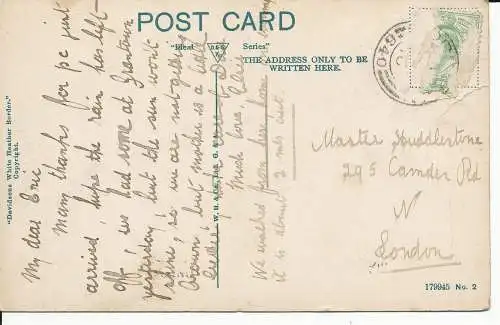 POST CARD
"Ideal Series"
THE ADDRESS ONLY TO BE
WRITTEN HERE.
"Davidsons White Heather Border."
Copyright.
My dear Eric
Many thanks for pc just
arrived I hope the rain has left
off, we had some at
yesterday, but the sun won't
shine, so we are not getting
brown, but mother is a little
better,
Much love, Dad
We walked from here
it is about 2 mls out.
Master Huddlestone
295 Camden Rd
N
London
179945 No. 2